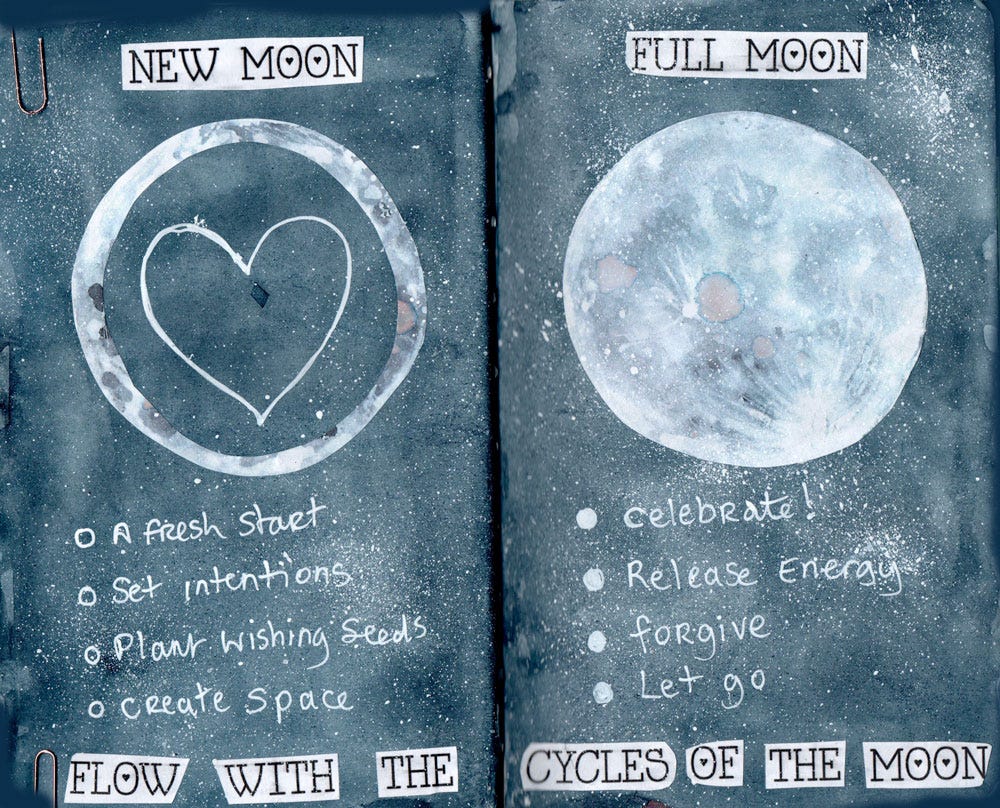 NEW MOON
A fresh start
Set intentions
Plant wishing seeds
create space
FULL MOON
celebrate!
Release Energy
forgive
Let go
FLOW WITH THE CYCLES OF THE MOON